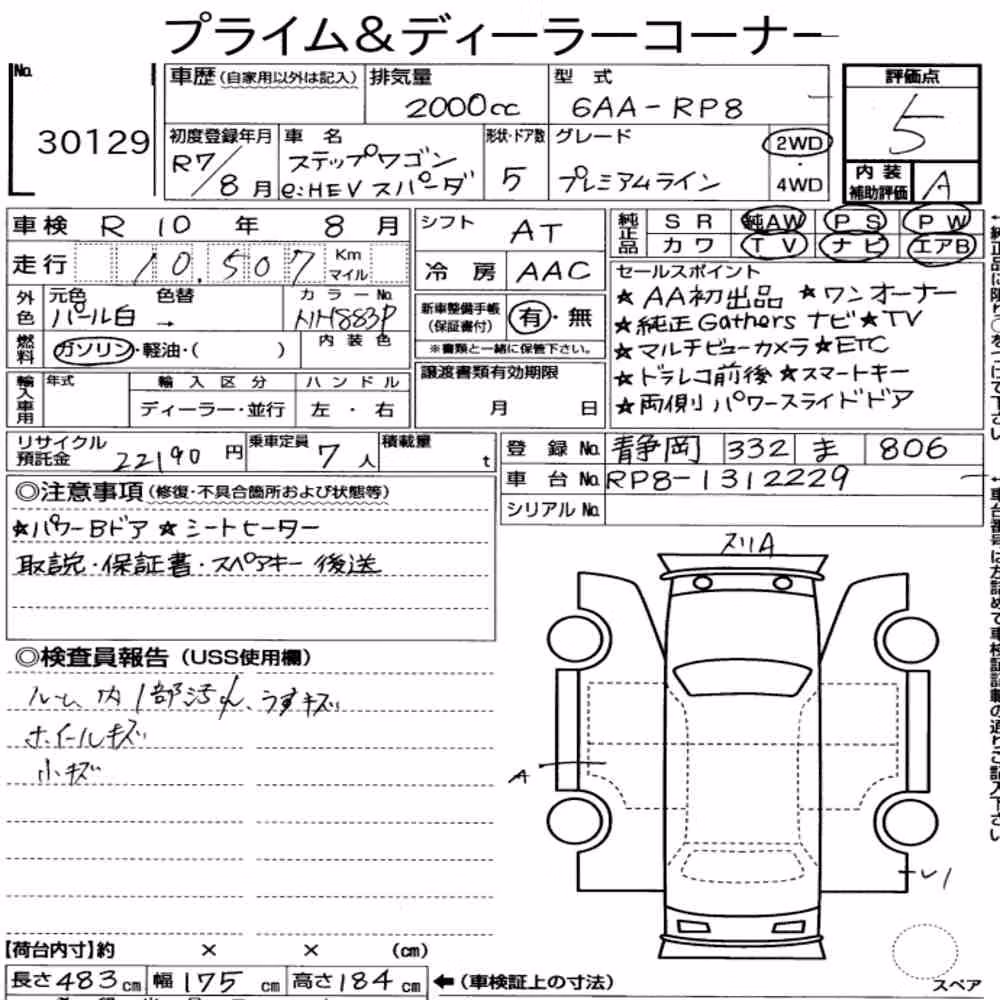 プライム&ディーラーコーナー
No. 30129
車歴(自家用以外は記入) 排気量 2000cc 型式 6AA-RP8
評価点 5
初度登録年月 R7/8月 車名 ステップワゴン e:HEV スパーダ 形状・ドア数 5 グレード プレミアムライン 2WD・4WD
内装補助評価 A
車検 R 10 年 8 月
走行 10,507 Km マイル
シフト AT
冷房 AAC
純正品 SR 純AW PS PW
カワ TV ナビ エアB
外色 元色 パール白 色替 → カラーNo. NH883P
燃料 ガソリン・軽油・( ) 内装色
新車整備手帳(保証書付) 有・無
※書類と一緒に保管下さい。
セールスポイント
★AA初出品 ★ワンオーナー
★純正Gathersナビ★TV
★マルチビューカメラ★ETC
★ドラレコ前後★スマートキー
★両側パワースライドドア
輸入車用 年式 輸入区分 ディーラー・並行 ハンドル 左・右
譲渡書類有効期限 月 日
リサイクル預託金 22190円 乗車定員 7人 積載量 t
登録No. 静岡 332 ま 806
車台No. RP8-1312229
シリアルNo.
◎注意事項(修復・不具合箇所および状態等)
★パワーBドア ★シートヒーター
取説・保証書・スペアキー 後送
◎検査員報告(USS使用欄)
ルーム内1部汚れ、うすキズ
ホイールキズ
小キズ
ヌリA
A
スペア
【荷台内寸】約 × × (cm)
長さ483cm 幅175cm 高さ184cm ←(車検証上の寸法)